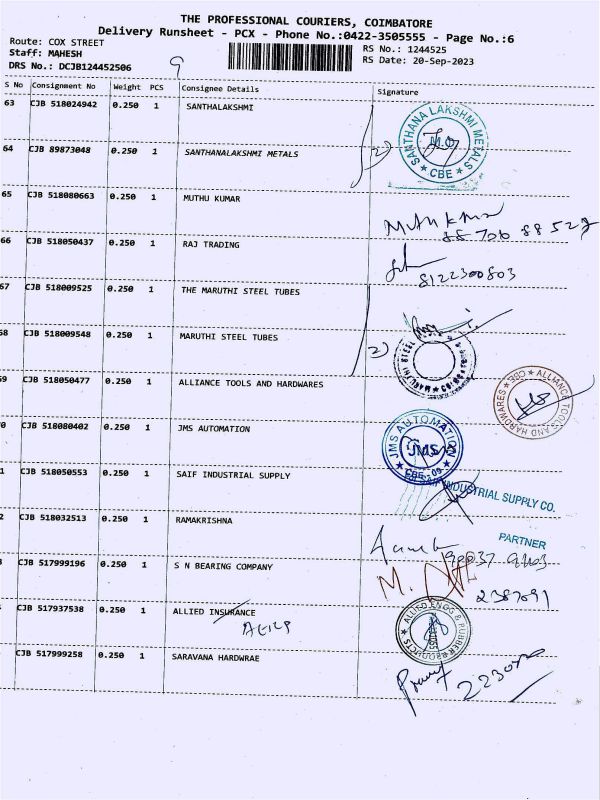 THE PROFESSIONAL COURIERS, COIMBATORE
Delivery Runsheet - PCX - Phone No.:0422-3505555 - Page No.:6
Route: COX STREET
RS No.: 1244525
Staff: MAHESH
RS Date: 20-Sep-2023
DRS No.: DCJB124452506
S No Consignment No Weight PCS Consignee Details Signature
63 CJB 518024942 0.250 1 SANTHALAKSHMI
SANTHANA LAKSHMI METALS
CBE
64 CJB 89873048 0.250 1 SANTHANALAKSHMI METALS 2)
65 CJB 518080663 0.250 1 MUTHU KUMAR
66 CJB 518050437 0.250 1 RAJ TRADING
8122300803
67 CJB 518009525 0.250 1 THE MARUTHI STEEL TUBES
68 CJB 518009548 0.250 1 MARUTHI STEEL TUBES 2)
69 CJB 518050477 0.250 1 ALLIANCE TOOLS AND HARDWARES
ALLIANCE TOOLS AND HARDWARES CBE
0 CJB 518080402 0.250 1 JMS AUTOMATION
JMS AUTOMATION
JMS
1 CJB 518050553 0.250 1 SAIF INDUSTRIAL SUPPLY
SAIF INDUSTRIAL SUPPLY CO.
PARTNER
2 CJB 518032513 0.250 1 RAMAKRISHNA
CJB 517999196 0.250 1 S N BEARING COMPANY
2387091
CJB 517937538 0.250 1 ALLIED INSURANCE
ALLIED ENGG & RUBBER PRODUCTS
CJB 517999258 0.250 1 SARAVANA HARDWRAE